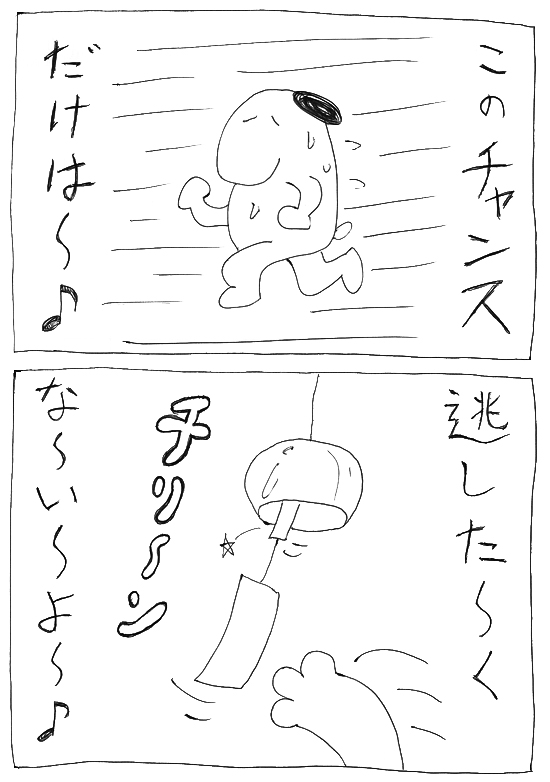 このチャンス
だけは〜♪
逃した〜く
チリーン
な〜い〜よ〜♪